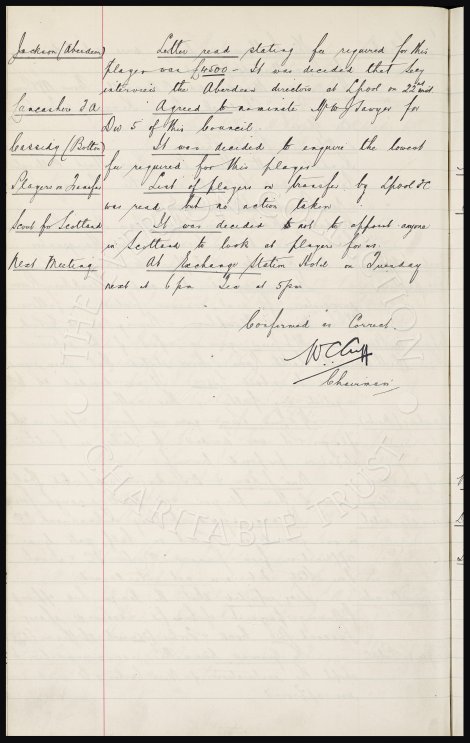 Jackson (Aberdeen) Letter read stating fee required for this
player was £4500 - It was decided that Secy
interview the Aberdeen directors at Lpool on 22nd inst
Lancashire F.A. Agreed to nominate Mr W J Sawyer for
Div 5 of this Council.
Cassidy (Bolton) It was decided to enquire the lowest
fee required for this player
Players on Transfer List of players on transfer by Lpool FC
was read but no action taken
Scout for Scotland It was decided not to appoint anyone
in Scotland to look at players for us.
Next Meeting At Exchange Station Hotel on Tuesday
next at 6 pm Tea at 5 pm
Confirmed as Correct.
W.C. Cuff
Chairman
CHARITABLE TRUST